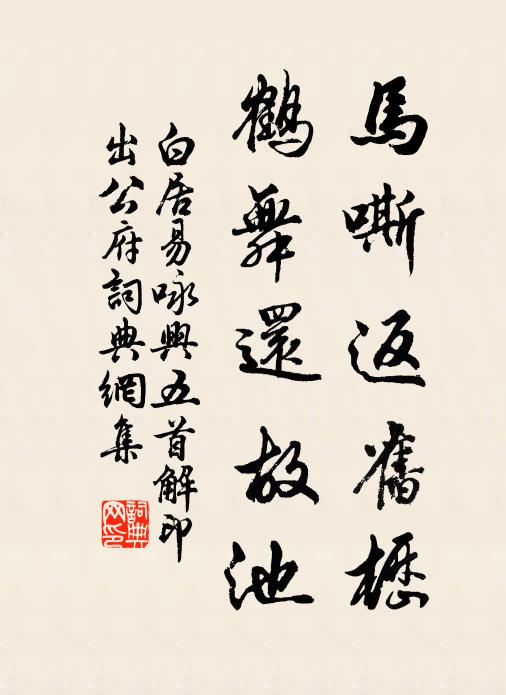 馬嘶返舊櫪
鶴舞還故池
白居易咏興五首解印
出公府詞典網集
詞典網印